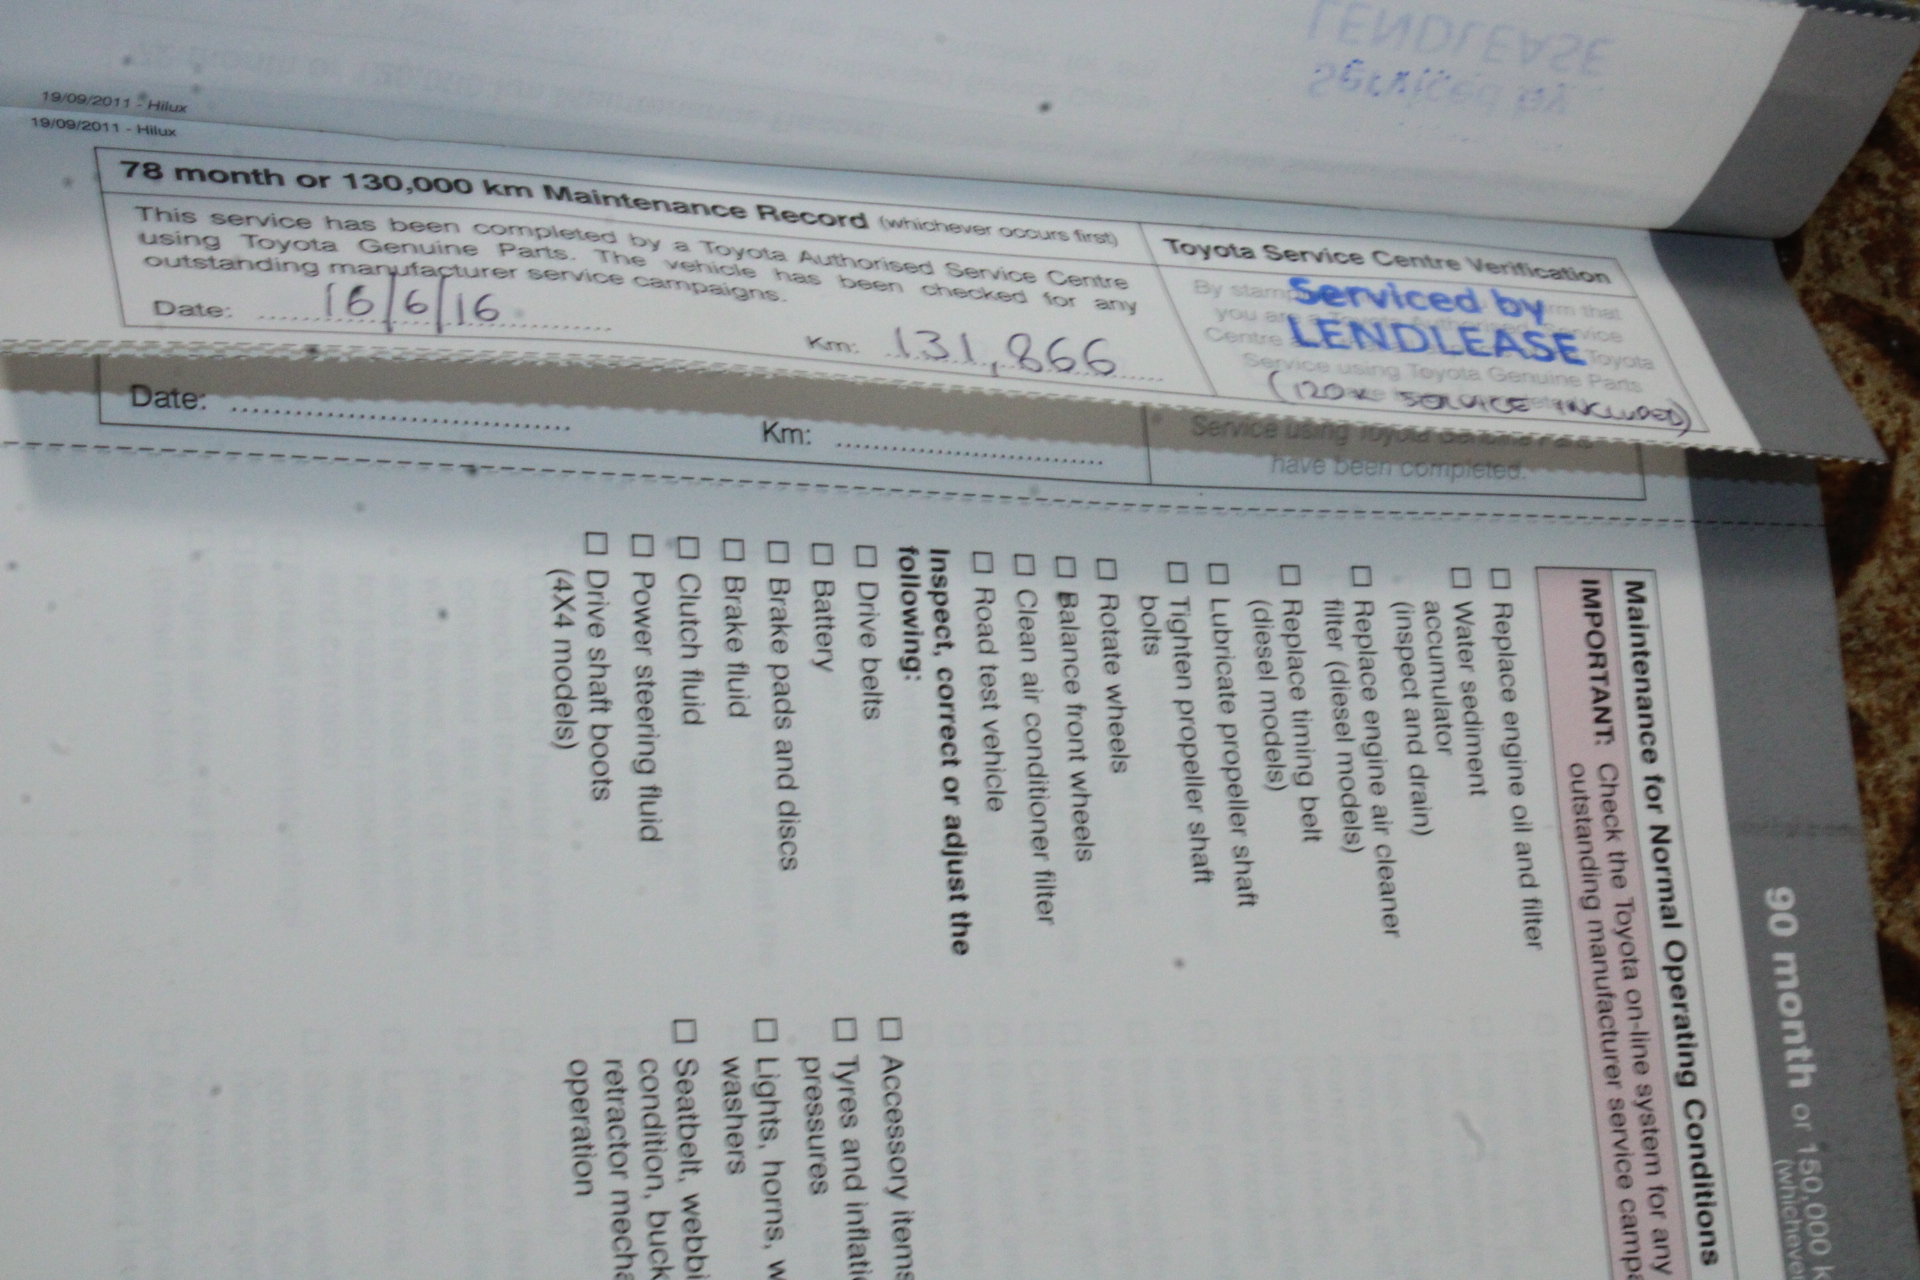 LENDLEASE
Serviced by
19/09/2011 - Hilux
19/09/2011 - Hilux
78 month or 130,000 km Maintenance Record (whichever occurs first)
This service has been completed by a Toyota Authorised Service Centre
using Toyota Genuine Parts. The vehicle has been checked for any
outstanding manufacturer service campaigns.
Date: 16/6/16
Km: 131,866
Toyota Service Centre Verification
By stam rm that
you are a Toyota Authorised Service
Centre Toyota
Service using Toyota Genuine Parts
Serviced by
LENDLEASE
(120K SERVICE INCLUDED)
Date:
Km:
Service using Toyota Genuine Parts
have been completed.
90 month or 150,000 k
(whicheve
Maintenance for Normal Operating Conditions
IMPORTANT: Check the Toyota on-line system for any
outstanding manufacturer service campa
Replace engine oil and filter
Water sediment
accumulator
(inspect and drain)
Replace engine air cleaner
filter (diesel models)
Replace timing belt
(diesel models)
Lubricate propeller shaft
Tighten propeller shaft
bolts
Rotate wheels
Balance front wheels
Clean air conditioner filter
Road test vehicle
Inspect, correct or adjust the
following:
Drive belts
Battery
Brake pads and discs
Brake fluid
Clutch fluid
Power steering fluid
Drive shaft boots
(4X4 models)
Accessory items
Tyres and inflati
pressures
Lights, horns, w
washers
Seatbelt, webbi
condition, buck
retractor mecha
operation